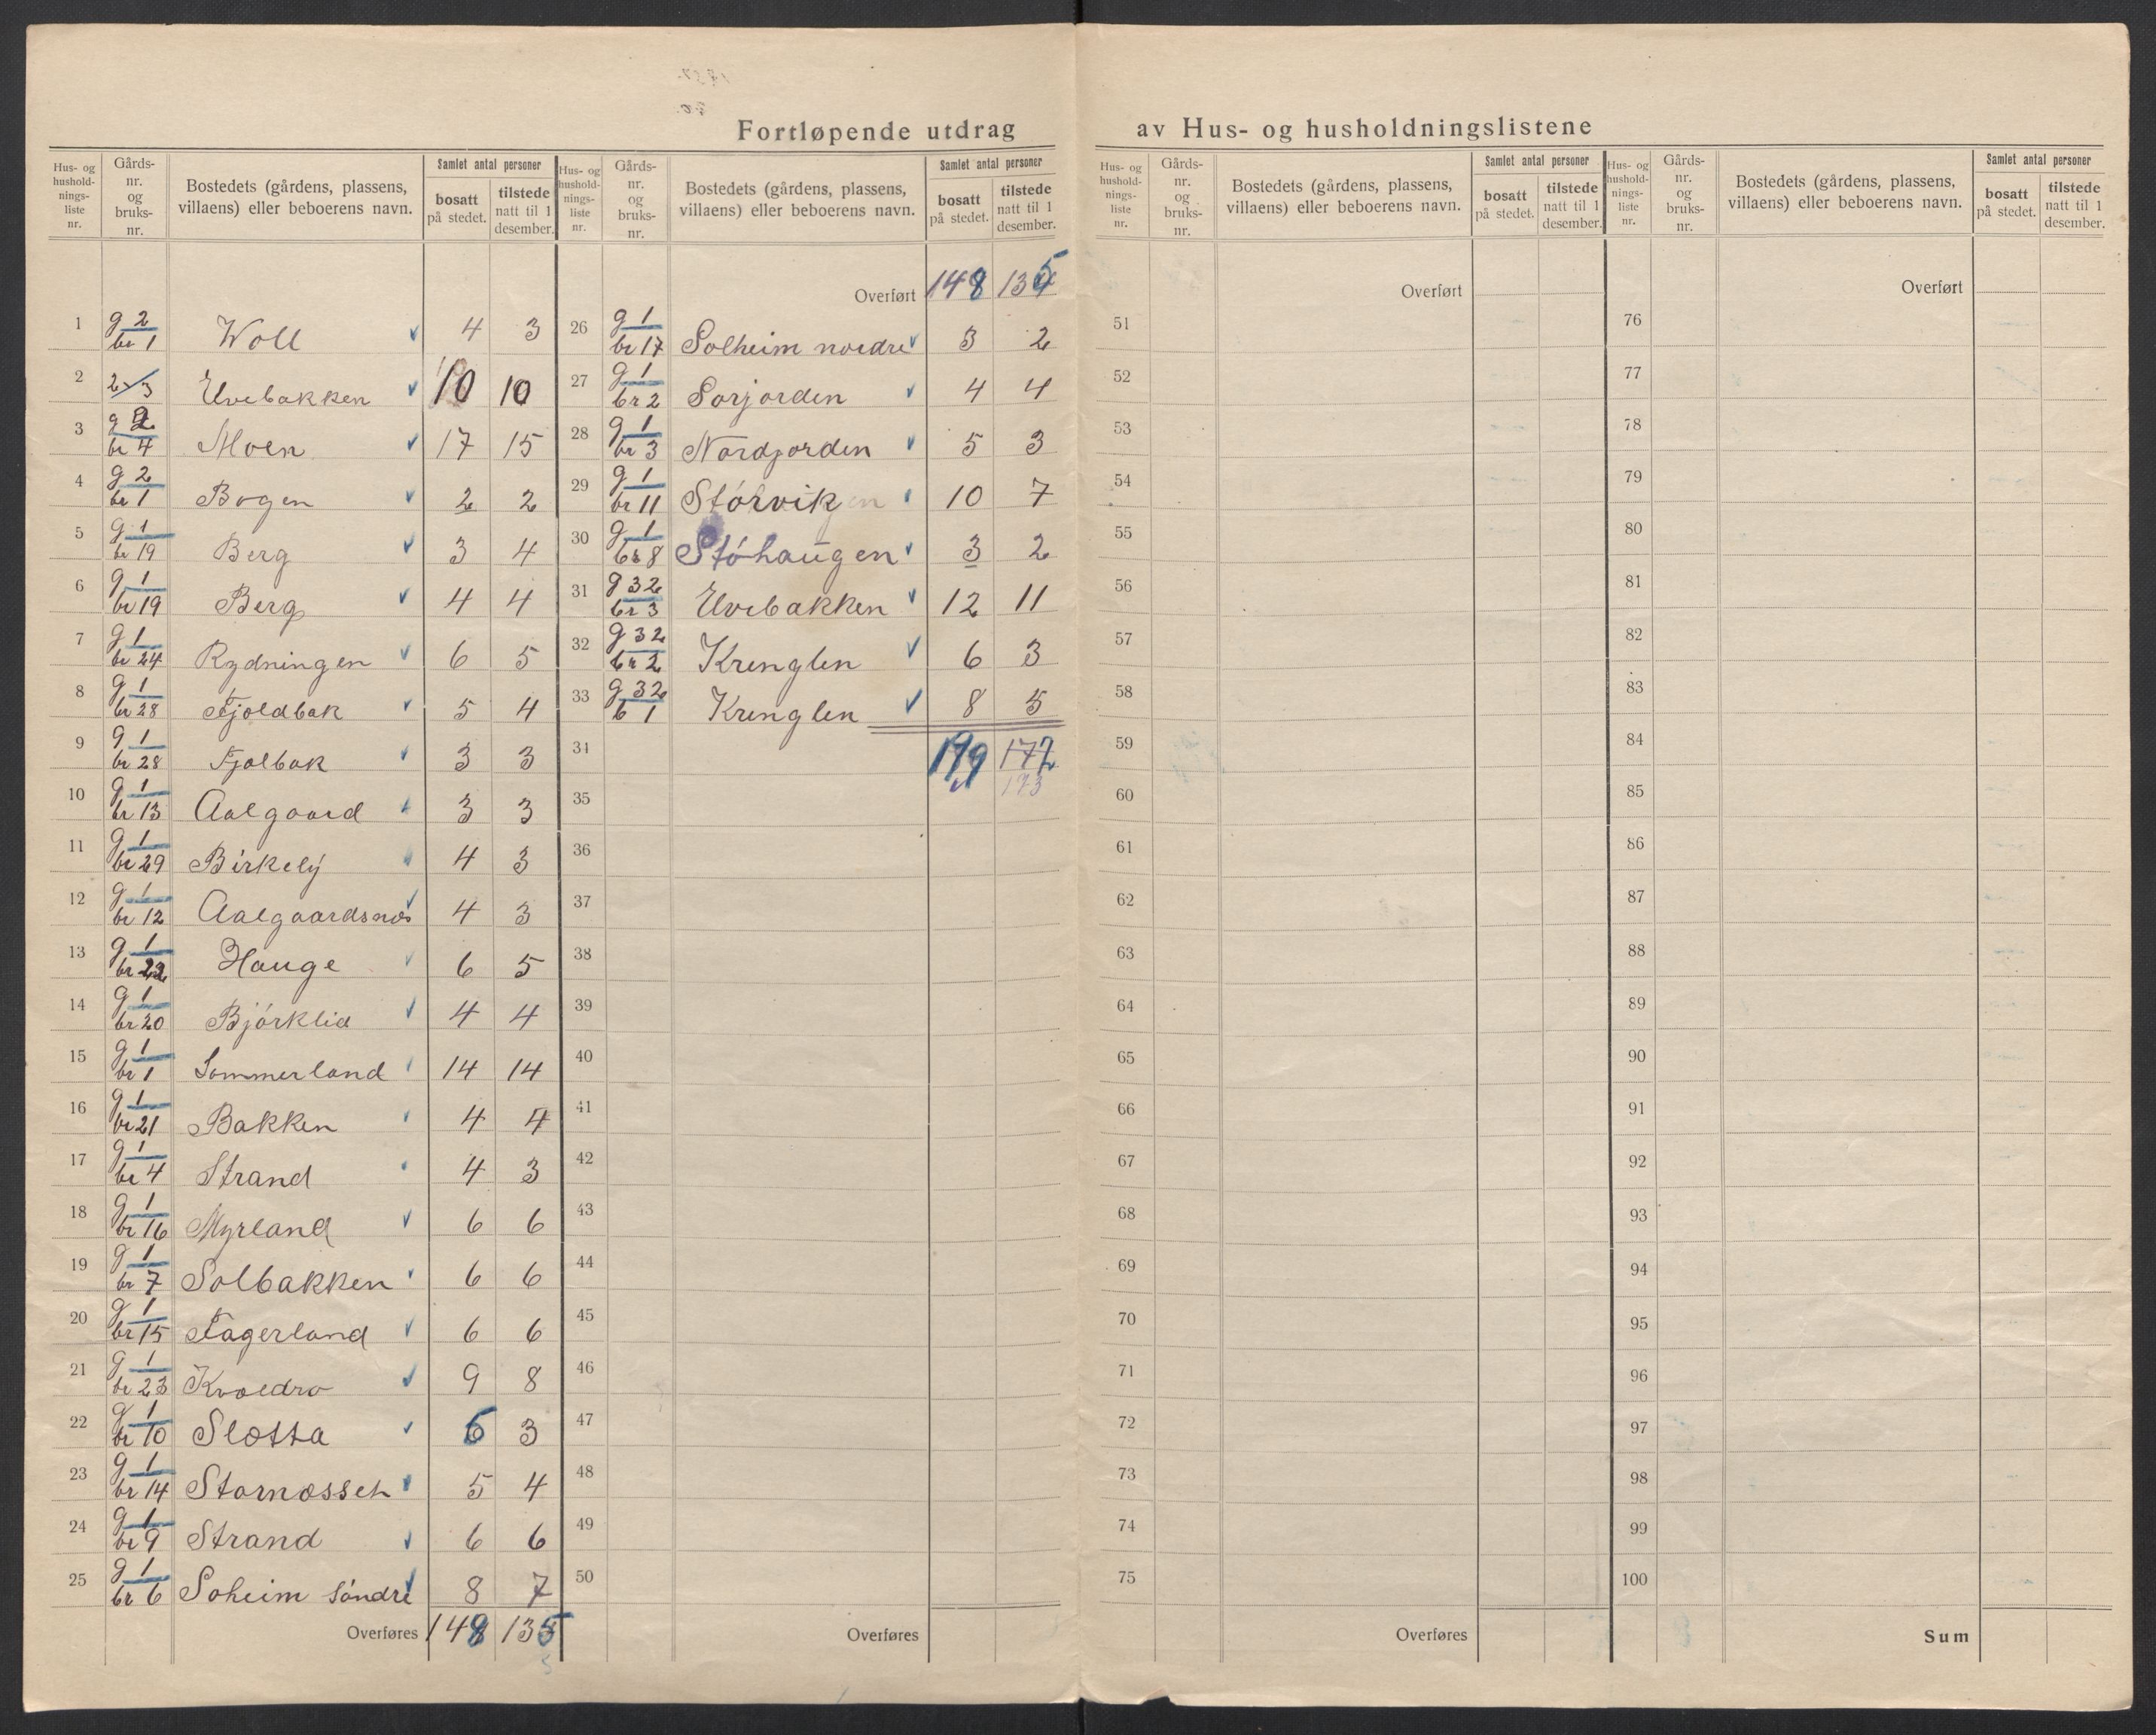 Fortløpende utdrag av Hus- og husholdningslistene
Hus- og husholdnings-liste nr. | Gårds-nr. og bruks-nr. | Bostedets (gårdens, plassens, villaens) eller beboerens navn. | Samlet antal personer | bosatt på stedet. | tilstede natt til 1 desember.
1 g 2 br 1 Woll 4 3
2 2 3 Elvebakken 10 10
3 g 2 br 4 Moen 17 15
4 g 2 br 1 Bogen 2 2
5 g 1 br 19 Berg 3 4
6 g 1 br 19 Berg 4 4
7 g 1 br 24 Rydningen 6 5
8 g 1 br 28 Fjoldbak 5 4
9 g 1 br 28 Fjolbak 3 3
10 g 1 br 13 Aalgaard 3 3
11 g 1 br 29 Birkely 4 3
12 g 1 br 12 Aalgaardsnes 4 3
13 g 1 br 22 Hauge 6 5
14 g 1 br 20 Bjórklid 4 4
15 g 1 br 1 Sommerland 14 14
16 g 1 br 21 Bakken 4 4
17 g 1 br 4 Strand 4 3
18 g 1 br 16 Myrland 6 6
19 g 1 br 7 Solbakken 6 6
20 g 1 br 15 Fagerland 6 6
21 g 1 br 23 Kvoedro 9 8
22 g 1 br 10 Slotta 6 3
23 g 1 br 14 Stornossen 5 4
24 g 1 br 9 Strand 6 6
25 g 1 br 6 Soheim sóndre 8 7
Overføres 148 135
Hus- og husholdnings-liste nr. | Gårds-nr. og bruks-nr. | Bostedets (gårdens, plassens, villaens) eller beboerens navn. | Samlet antal personer | bosatt på stedet. | tilstede natt til 1 desember.
Overført 148 135
26 g 1 br 17 Solheim nordre 3 2
27 g 1 br 2 Sorjorden 4 4
28 g 1 br 3 Nordjorden 5 3
29 g 1 br 11 Stórviken 10 7
30 g 1 br 8 Stóhaugen 3 2
31 g 32 br 3 Elvebakken 12 11
32 g 32 br 2 Krenglen 6 3
33 g 32 b 1 Krenglen 8 5
31 199 172
173
35
36
37
38
39
40
41
42
43
44
45
46
47
48
49
50
Overføres
Hus- og husholdnings-liste nr. | Gårds-nr. og bruks-nr. | Bostedets (gårdens, plassens, villaens) eller beboerens navn. | Samlet antal personer | bosatt på stedet. | tilstede natt til 1 desember.
Overført
51
52
53
54
55
56
57
58
59
60
61
62
63
64
65
66
67
68
69
70
71
72
73
74
75
Overføres
Hus- og husholdnings-liste nr. | Gårds-nr. og bruks-nr. | Bostedets (gårdens, plassens, villaens) eller beboerens navn. | Samlet antal personer | bosatt på stedet. | tilstede natt til 1 desember.
Overført
76
77
78
79
80
81
82
83
84
85
86
87
88
89
90
91
92
93
94
95
96
97
98
99
100
Sum